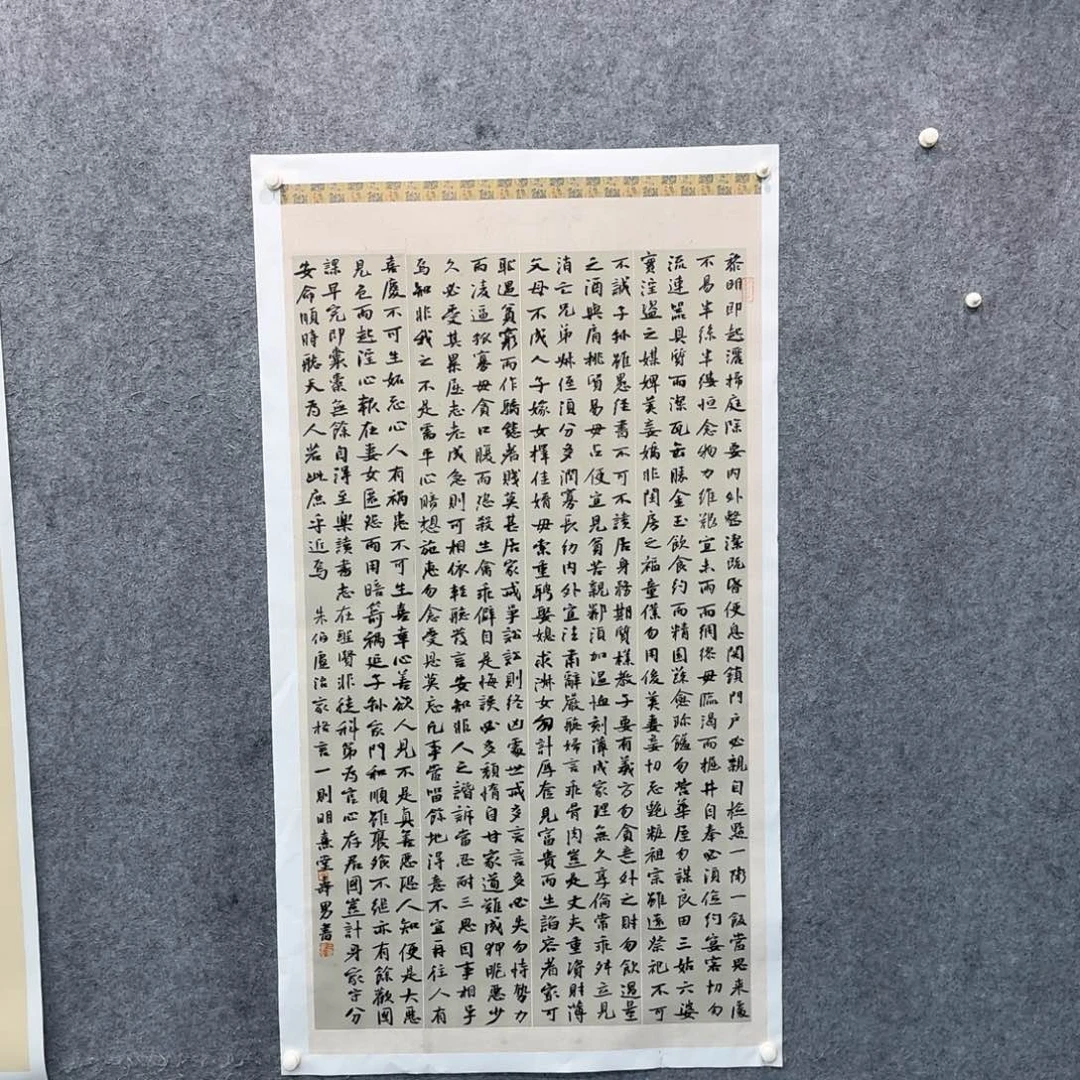 黎明即起灑掃庭除要內外整潔既昏便息関鎖門户必親自檢點一粥一飯當思来處
不易半絲半縷恒念物力維艱宜未雨而綢繆毋臨渴而掘井自奉必須儉約宴客切勿
流連器具質而潔瓦缶勝金玉飲食約而精園蔬愈珍饈勿營華屋勿謀良田三姑六婆
實淫盜之媒婢美妾嬌非閨房之福童僕勿用俊美妻妾切忌艷粧祖宗雖遠祭祀不可
不誠子孫雖愚经書不可不讀居身務期質樸教子要有義方勿貪意外之財勿飲過量
之酒與肩挑貿易毋占便宜見貧苦親鄰須加温恤刻薄成家理無久享倫常乖舛立見
消亡兄弟叔侄須分多潤寡長幼內外宜法肅辭嚴聽婦言乖骨肉豈是丈夫重資財薄
父母不成人子嫁女擇佳婿毋索重聘娶媳求淑女勿計厚奩見富貴而生諂容者最可
恥遇貧窮而作驕態者賤莫甚居家戒爭訟訟則终凶處世戒多言言多必失勿恃勢力
而凌逼孤寡毋貪口腹而恣殺生禽乖僻自是悔誤必多頹惰自甘家道難成狎昵惡少
久必受其累屈志老成急則可相依輕聽發言安知非人之譖訴當忍耐三思因事相爭
焉知非我之不是需平心暗想施惠勿念受恩莫忘凡事當留餘地得意不宜再往人有
喜慶不可生妬忌心人有禍患不可生喜幸心善欲人見不是真善惡恐人知便是大惡
見色而起淫心報在妻女匿怨而用暗箭禍延子孫家門和順雖饔飧不繼亦有餘歡國
課早完即囊橐無餘自得至樂讀書志在聖賢非徒科第為官心存君國豈計身家守分
安命順時聽天為人若此庶乎近焉　朱伯廬治家格言一則明熹堂壽男書